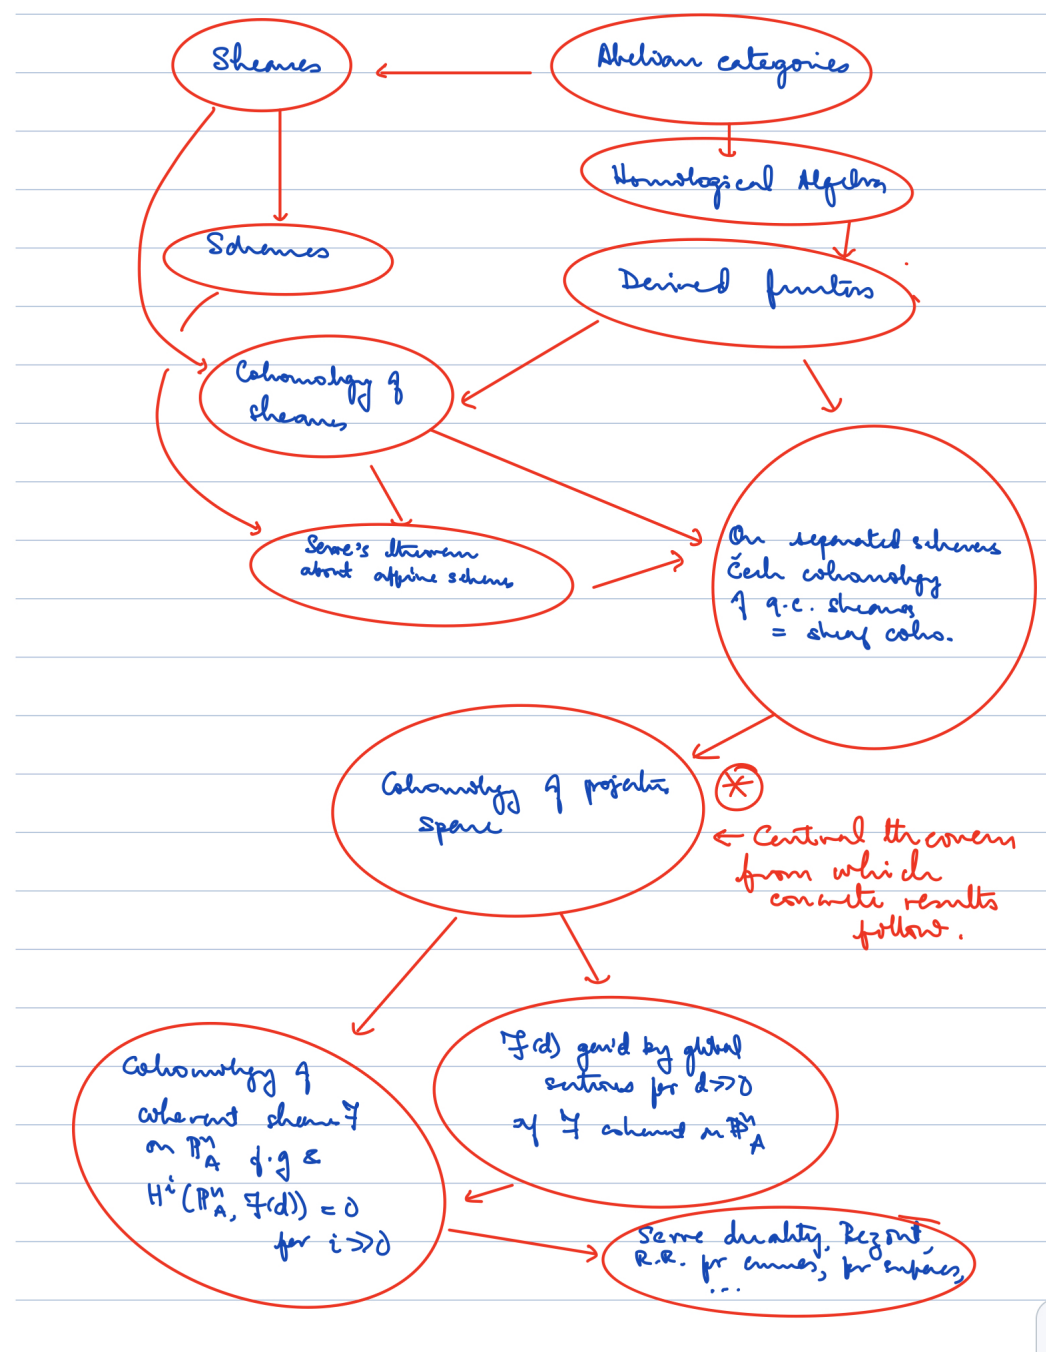 Sheaves
Abelian categories
Homological Algebra
Schemes
Derived functors
Cohomology of
sheaves
Serre's theorem
about affine schems
On separated schemes
Čech cohomology
of q.c. sheaves
= sheaf coho.
Cohomology of projective
space
*
← Central theorem
from which
concrete results
follow.
Cohomology of
coherent sheaves ℱ
on ℙⁿ_A f.g &
Hⁱ(ℙⁿ_A, ℱ(d)) = 0
for i >> 0
ℱ(d) gen'd by global
sections for d >> 0
if ℱ coherent on ℙⁿ_A
Serre duality, Bezout,
R.R. for curves, for surfaces,
...